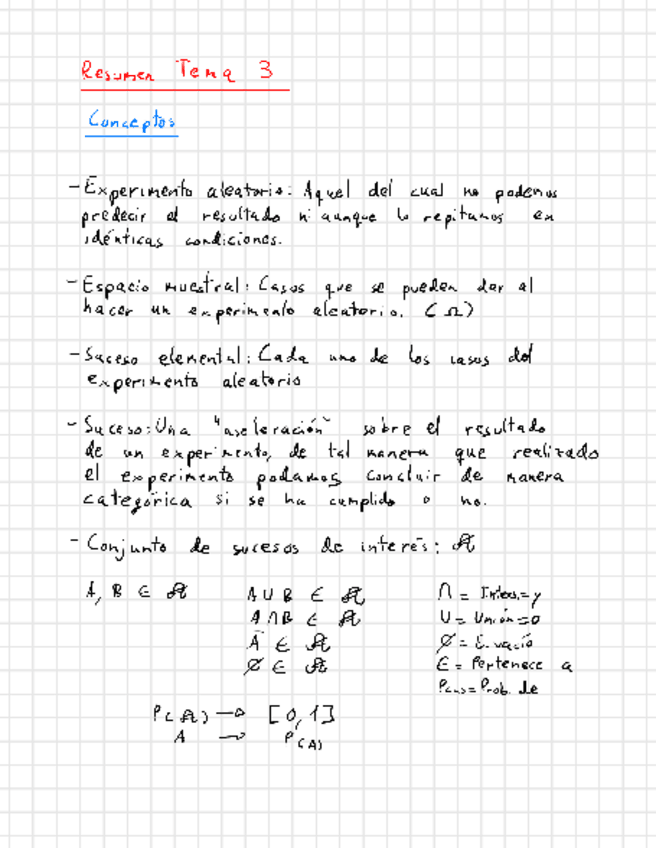 Resumen Tema 3
Conceptos
- Experimento aleatorio: Aquel del cual no podemos
predecir el resultado ni aunque lo repitamos en
idénticas condiciones.
- Espacio muestral: Casos que se pueden dar al
hacer un experimento aleatorio. (Ω)
- Suceso elemental: Cada uno de los casos del
experimento aleatorio
- Suceso: Una "aseleración" sobre el resultado
de un experimento, de tal manera que realizado
el experimento podamos concluir de manera
categórica si se ha cumplido o no.
- Conjunto de sucesos de interés: 𝒜
A, B ∈ 𝒜 A ∪ B ∈ 𝒜 ∩ = Inters. = y
A ∩ B ∈ 𝒜 U = Unión = o
Ā ∈ 𝒜 Ø = C. vacío
Ø ∈ 𝒜 ∈ = Pertenece a
= Prob. de
P(𝒜) → [0,1]
A → P(A)